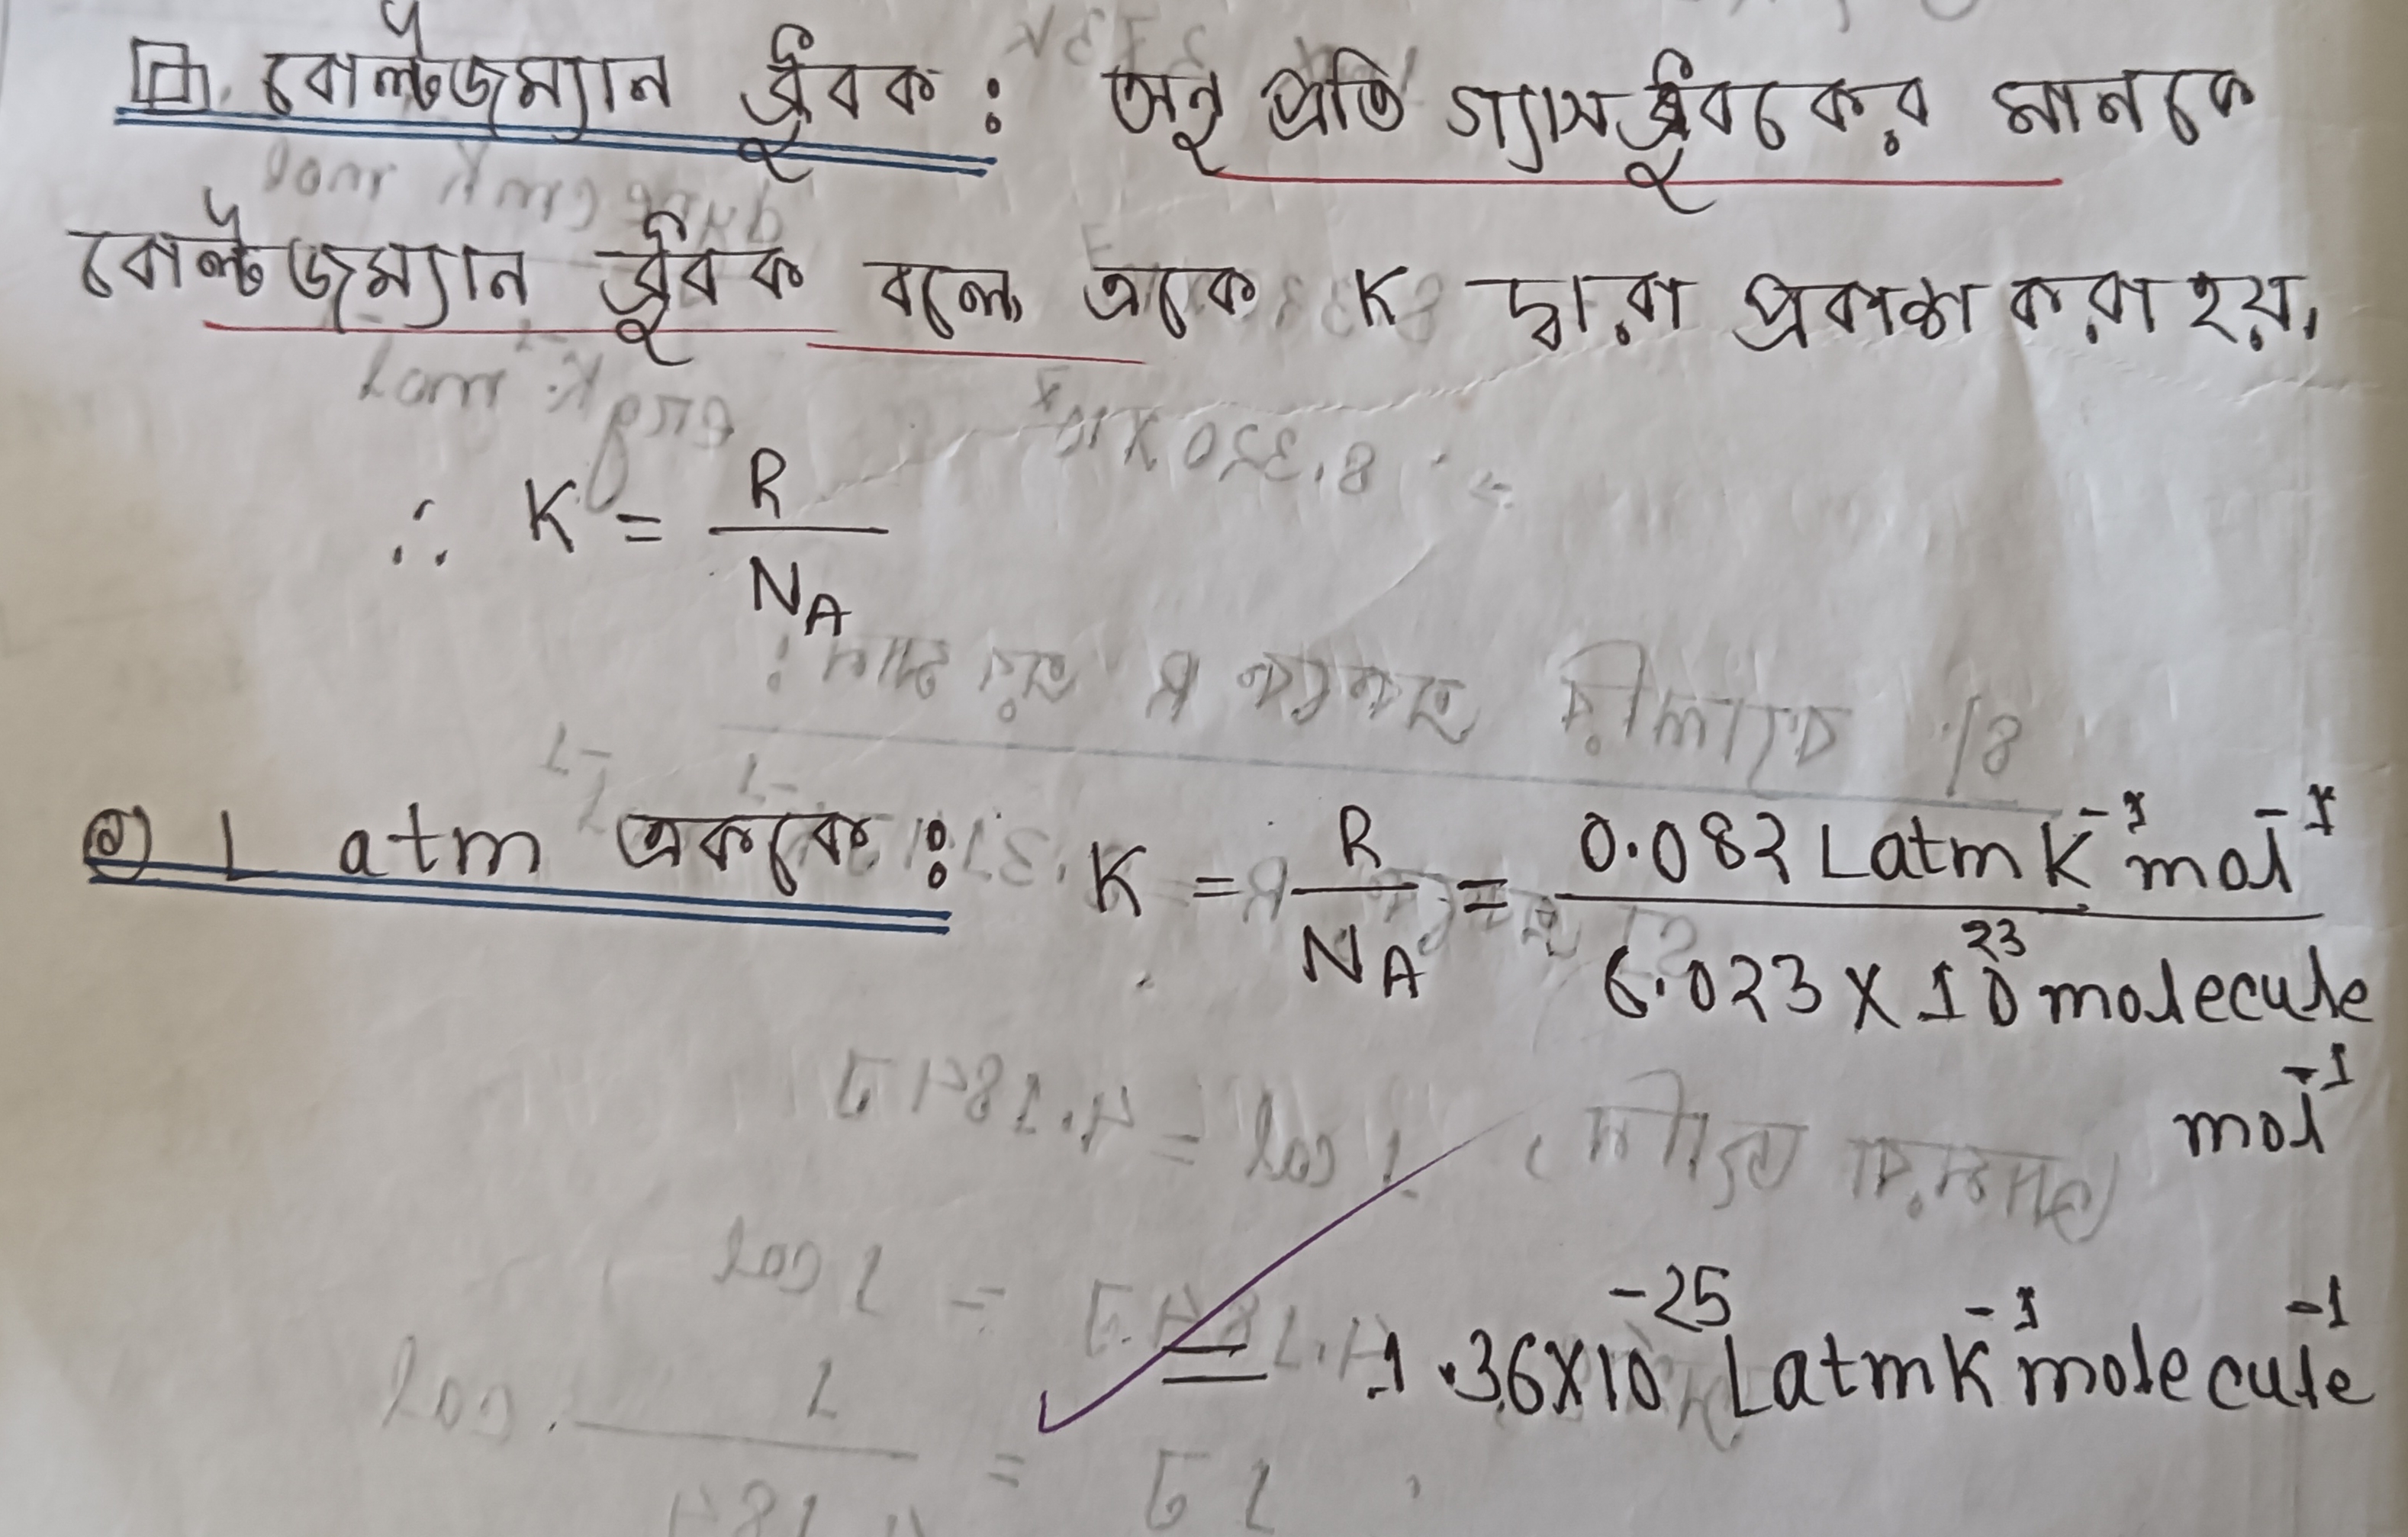 বোল্টজম্যান ধ্রুবক : অনু প্রতি গ্যাস ধ্রুবকের মানকে
বোল্টজম্যান ধ্রুবক বলে, একে K দ্বারা প্রকাশ করা হয়।
∴ K = R / N_A
@) L atm এককে : K = R / N_A = 0.082 L atm K⁻¹ mol⁻¹ / 6.023 × 10²³ molecule
mol⁻¹
= 1.36 × 10⁻²⁵ L atm K⁻¹ molecule⁻¹